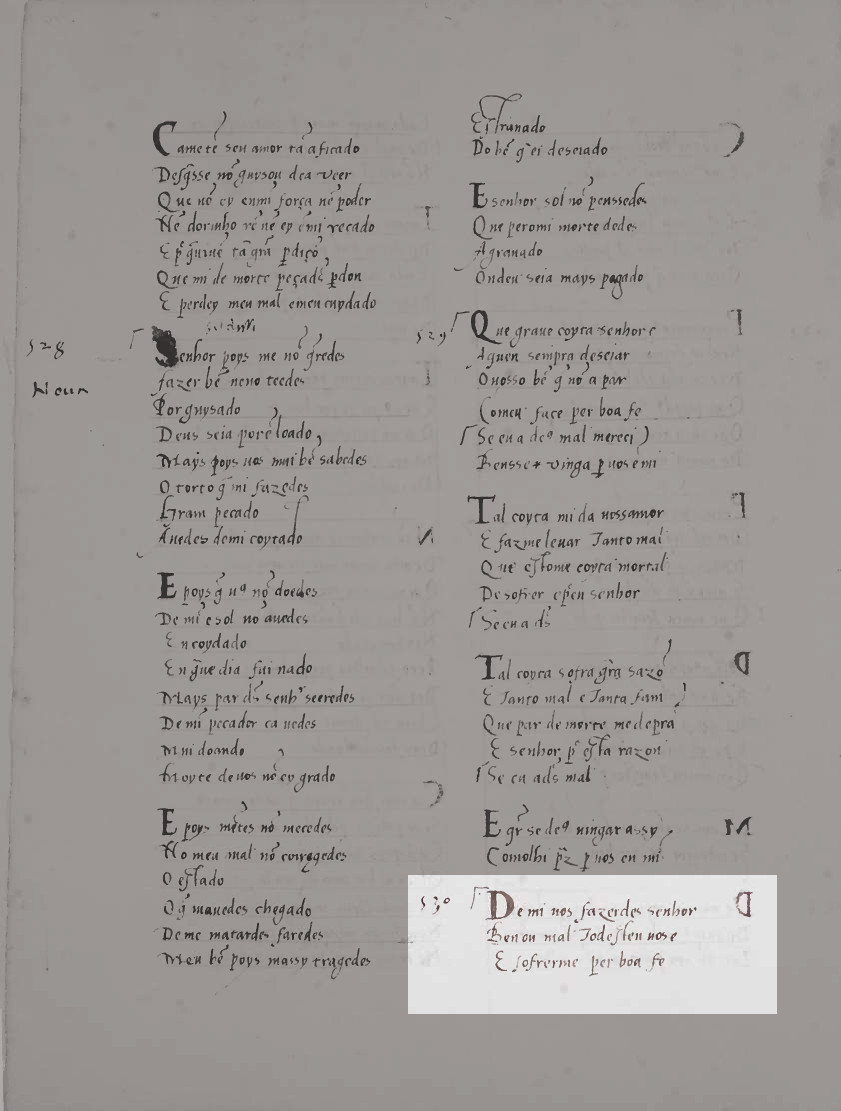 Camete seu amor tã aficado
Desq̃sse nõ guysou dea veer
Que nõ ey enmi força nẽ poder
Nẽ dormho rẽ nẽ ey ẽmi recado
E perdey meu mal emeu cuydado
528
Senhor poys me nõ q̃redes
fazer bẽ neno teedes
Por guysado
Deus seia porẽ loado
Mays poys uos mui bẽ sabedes
O torto q̃ mi fazedes
Gram pecado
Auedes demi coytado
E poys q̃ uꝰ nõ doedes
De mi e sol nõ auedes
En coydado
En g̃ue dia fui nado
Mays par ds̃ senhʳ seeredes
De mi pecador ca uedes
Mui doando
Moyte deuos nẽ ey grado
E poys mẽtes nõ metedes
No meu mal nõ corregedes
O estado
O q̃ mauedes chegado
De me matardes faredes
Meu bẽ poys massy tragedes
Estranado
Do bẽ q̃ ei deseiado
E senhor sol nõ penssedes
Que peromi morte dedes
Agranado
Ondeu seia mays pagado
529
Que graue coyta senhor e
Aquen sempra deseiar
O uosso bẽ q̃ nõ a par
Comeu face per boa fe
Se eu a deꝰ mal mereci
Tal coyta mi da uossamor
E fazme leuar Tanto mal
Que estome coyta mortal
De sofrer epẽn senhor
Se eu a ds̃
Tal coyta sofra grã sazõ
E Tanto mal e Tanta fam
Que par de morte me depra
E senhor pʳ esta razon
Se eu ads̃ mal
E grʳ se deꝰ uingar assy
Comolhi prʳz p̱ uos en mi
530
De mi uos fazerdes senhor
Ben ou mal Todesten uos e
E sofrerme per boa fe